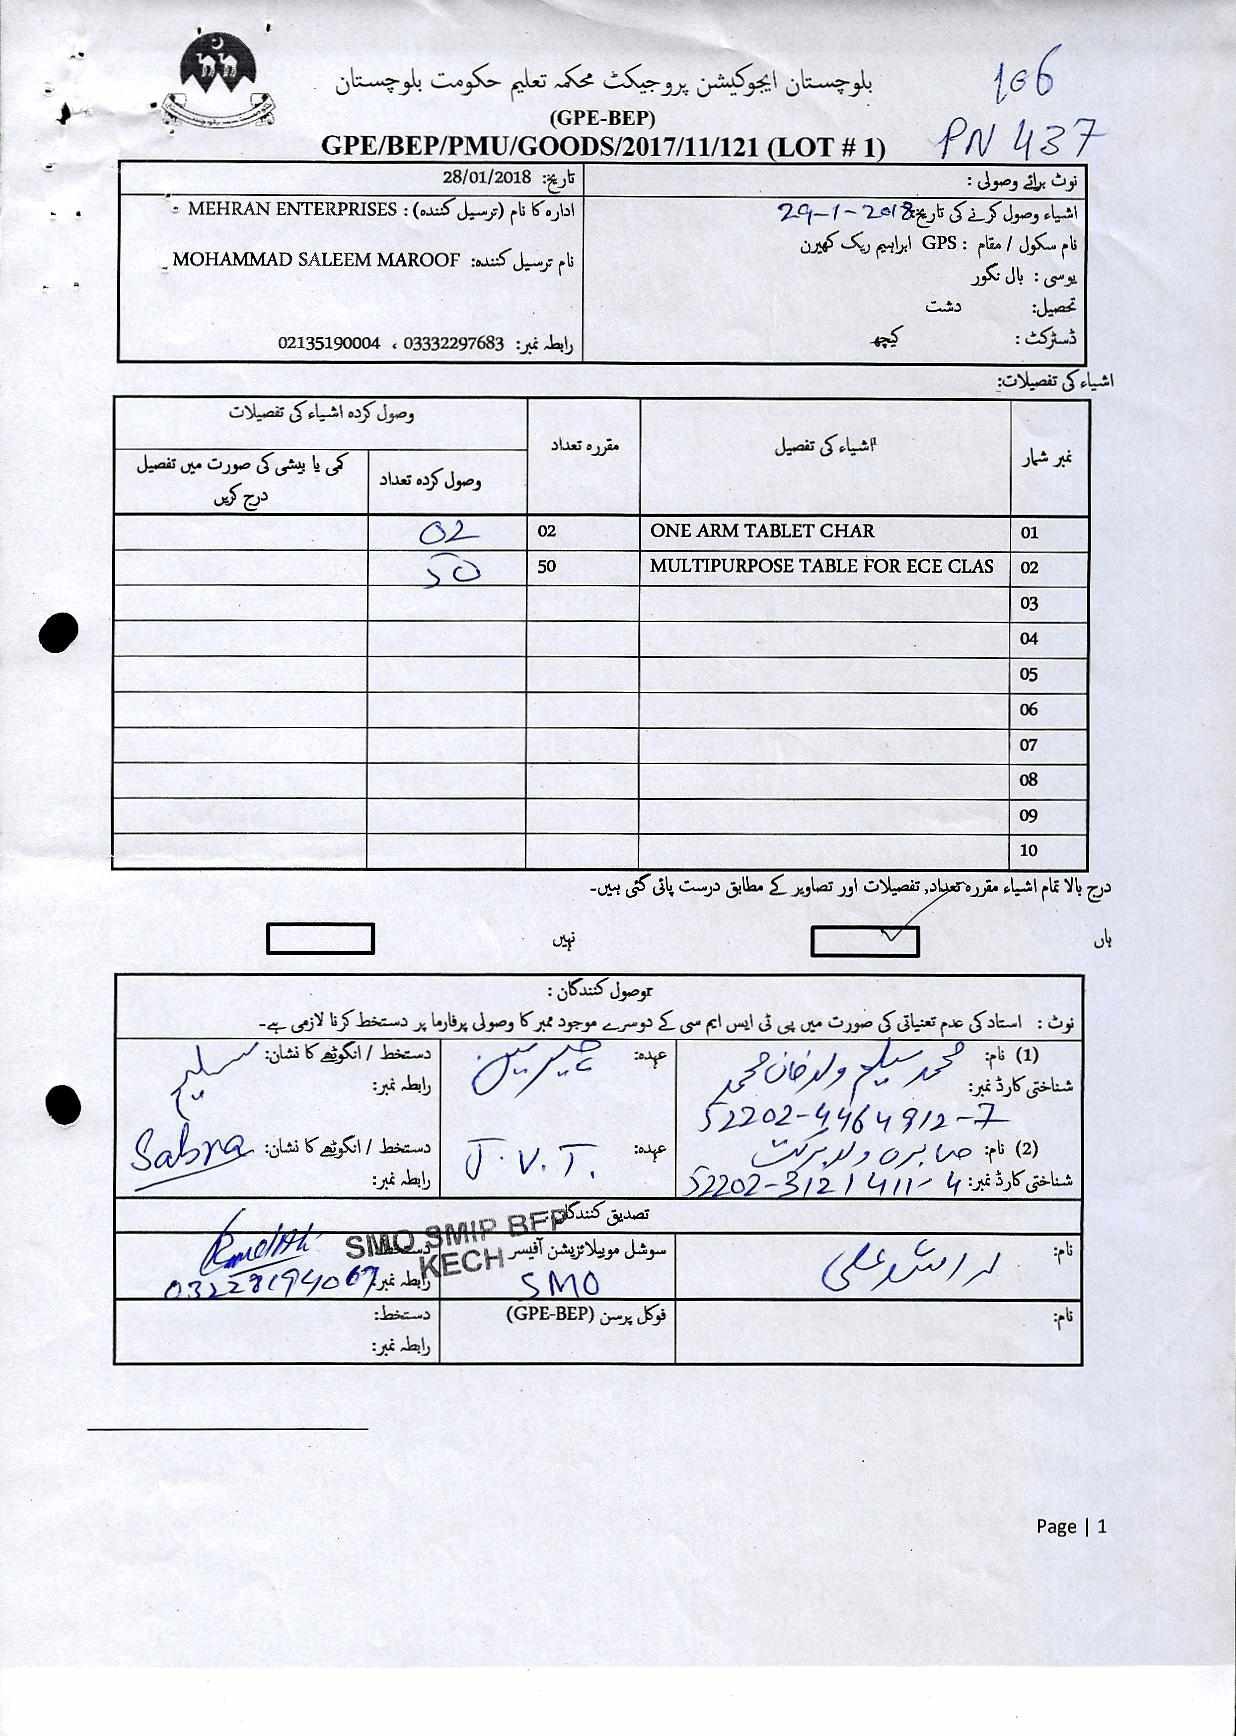 بلوچستان ایجوکیشن پروجیکٹ محکمہ تعلیم حکومت بلوچستان
106
(GPE-BEP)
PN 437
GPE/BEP/PMU/GOODS/2017/11/121 (LOT # 1)
نوٹ برائے وصولی :
تاریخ: 28/01/2018
اشیاء وصول کرنے کی تاریخ: 29-1-2018
ادارہ کا نام (ترسیل کنندہ) : MEHRAN ENTERPRISES -
نام سکول / مقام : GPS ابراہیم ریک کھیرن
نام ترسیل کنندہ: MOHAMMAD SALEEM MAROOF -
یوسی : بال نگور
تحصیل: دشت
ڈسٹرکٹ : کیچ
رابطہ نمبر: 03332297683 ، 02135190004
اشیاء کی تفصیلات:
نمبر شمار اشیاء کی تفصیل مقررہ تعداد وصول کردہ اشیاء کی تفصیلات
وصول کردہ تعداد کمی یا بیشی کی صورت میں تفصیل درج کریں
01 ONE ARM TABLET CHAR 02 02
02 MULTIPURPOSE TABLE FOR ECE CLAS 50 50
03
04
05
06
07
08
09
10
درج بالا تمام اشیاء مقررہ تعداد, تفصیلات اور تصاویر کے مطابق درست پائی گئی ہیں۔
ہاں نہیں
وصول کنندگان :
نوٹ : استاد کی عدم تعنیاتی کی صورت میں پی ٹی ایس ایم سی کے دوسرے موجود ممبر کا وصولی پرفارما پر دستخط کرنا لازمی ہے۔
(1) نام: محمد سلیم ولد خان محمد عہدہ: چیئرمین دستخط / انگوٹھے کا نشان: سلیم
شناختی کارڈ نمبر: 52202-4464912-7 رابطہ نمبر:
(2) نام: صابرہ ولد برکت عہدہ: J.V.T. دستخط / انگوٹھے کا نشان: Sabra
شناختی کارڈ نمبر: 52202-3121411-4 رابطہ نمبر:
تصدیق کنندگان
SMO SMIP BEP
KECH
نام: راشد علی سوشل موبیلائزیشن آفیسر دستخط:
SMO رابطہ نمبر:
نام: فوکل پرسن (GPE-BEP) دستخط:
رابطہ نمبر:
Page | 1